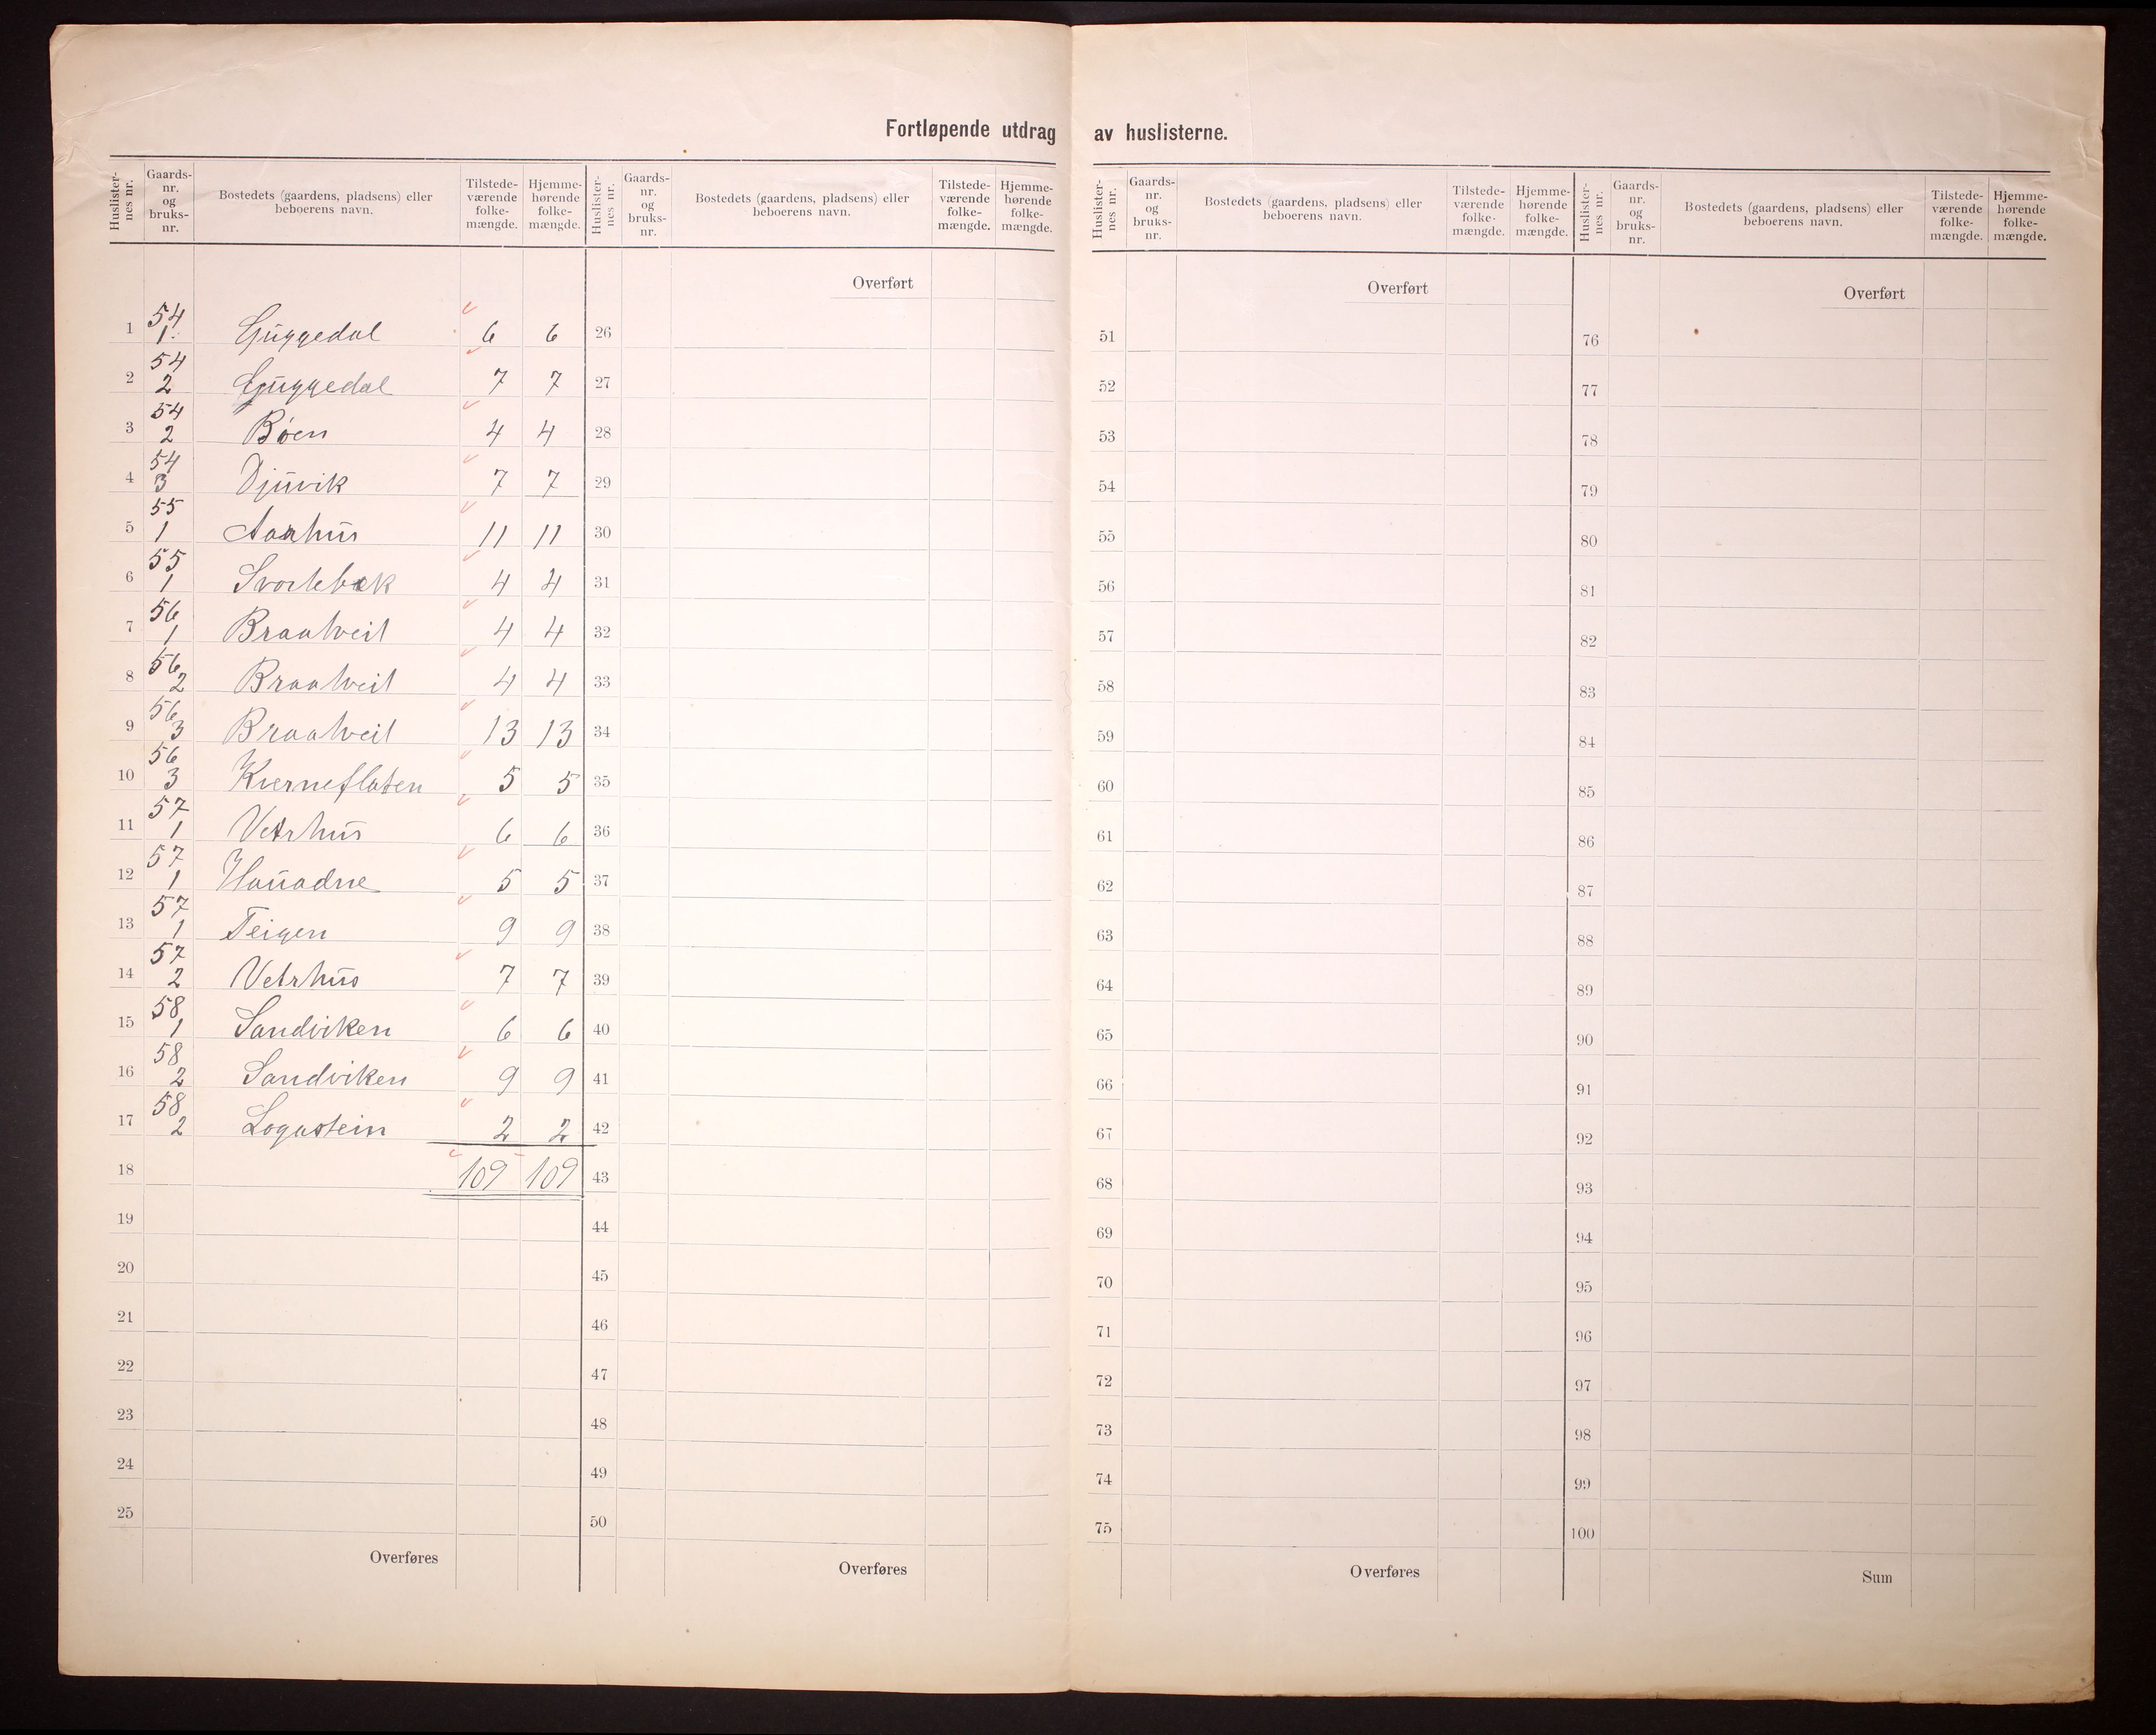 Fortløpende utdrag av huslisterne.
Huslister-nes nr. Gaards-nr. og bruks-nr. Bostedets (gaardens, pladsens) eller beboerens navn. Tilstede-værende folke-mængde. Hjemme-hørende folke-mængde.
1 54 1 Guggedal 6 6
2 54 2 Guggedal 7 7
3 54 2 Bøen 4 4
4 54 3 Djuvik 7 7
5 55 1 Aarhus 11 11
6 55 1 Svortebæk 4 4
7 56 1 Braatveit 4 4
8 56 2 Braatveit 4 4
9 56 3 Braatveit 13 13
10 56 3 Kverneflaten 5 5
11 57 1 Vetrhus 6 6
12 57 1 Hauadne 5 5
13 57 1 Teigen 9 9
14 57 2 Vetrhus 7 7
15 58 1 Sandviken 6 6
16 58 2 Sandviken 9 9
17 58 2 Logastein 2 2
18 109 109
19
20
21
22
23
24
25
Overføres
Huslister-nes nr. Gaards-nr. og bruks-nr. Bostedets (gaardens, pladsens) eller beboerens navn. Tilstede-værende folke-mængde. Hjemme-hørende folke-mængde.
Overført
26
27
28
29
30
31
32
33
34
35
36
37
38
39
40
41
42
43
44
45
46
47
48
49
50
Overføres
Huslister-nes nr. Gaards-nr. og bruks-nr. Bostedets (gaardens, pladsens) eller beboerens navn. Tilstede-værende folke-mængde. Hjemme-hørende folke-mængde.
Overført
51
52
53
54
55
56
57
58
59
60
61
62
63
64
65
66
67
68
69
70
71
72
73
74
75
Overføres
Huslister-nes nr. Gaards-nr. og bruks-nr. Bostedets (gaardens, pladsens) eller beboerens navn. Tilstede-værende folke-mængde. Hjemme-hørende folke-mængde.
Overført
76
77
78
79
80
81
82
83
84
85
86
87
88
89
90
91
92
93
94
95
96
97
98
99
100
Sum